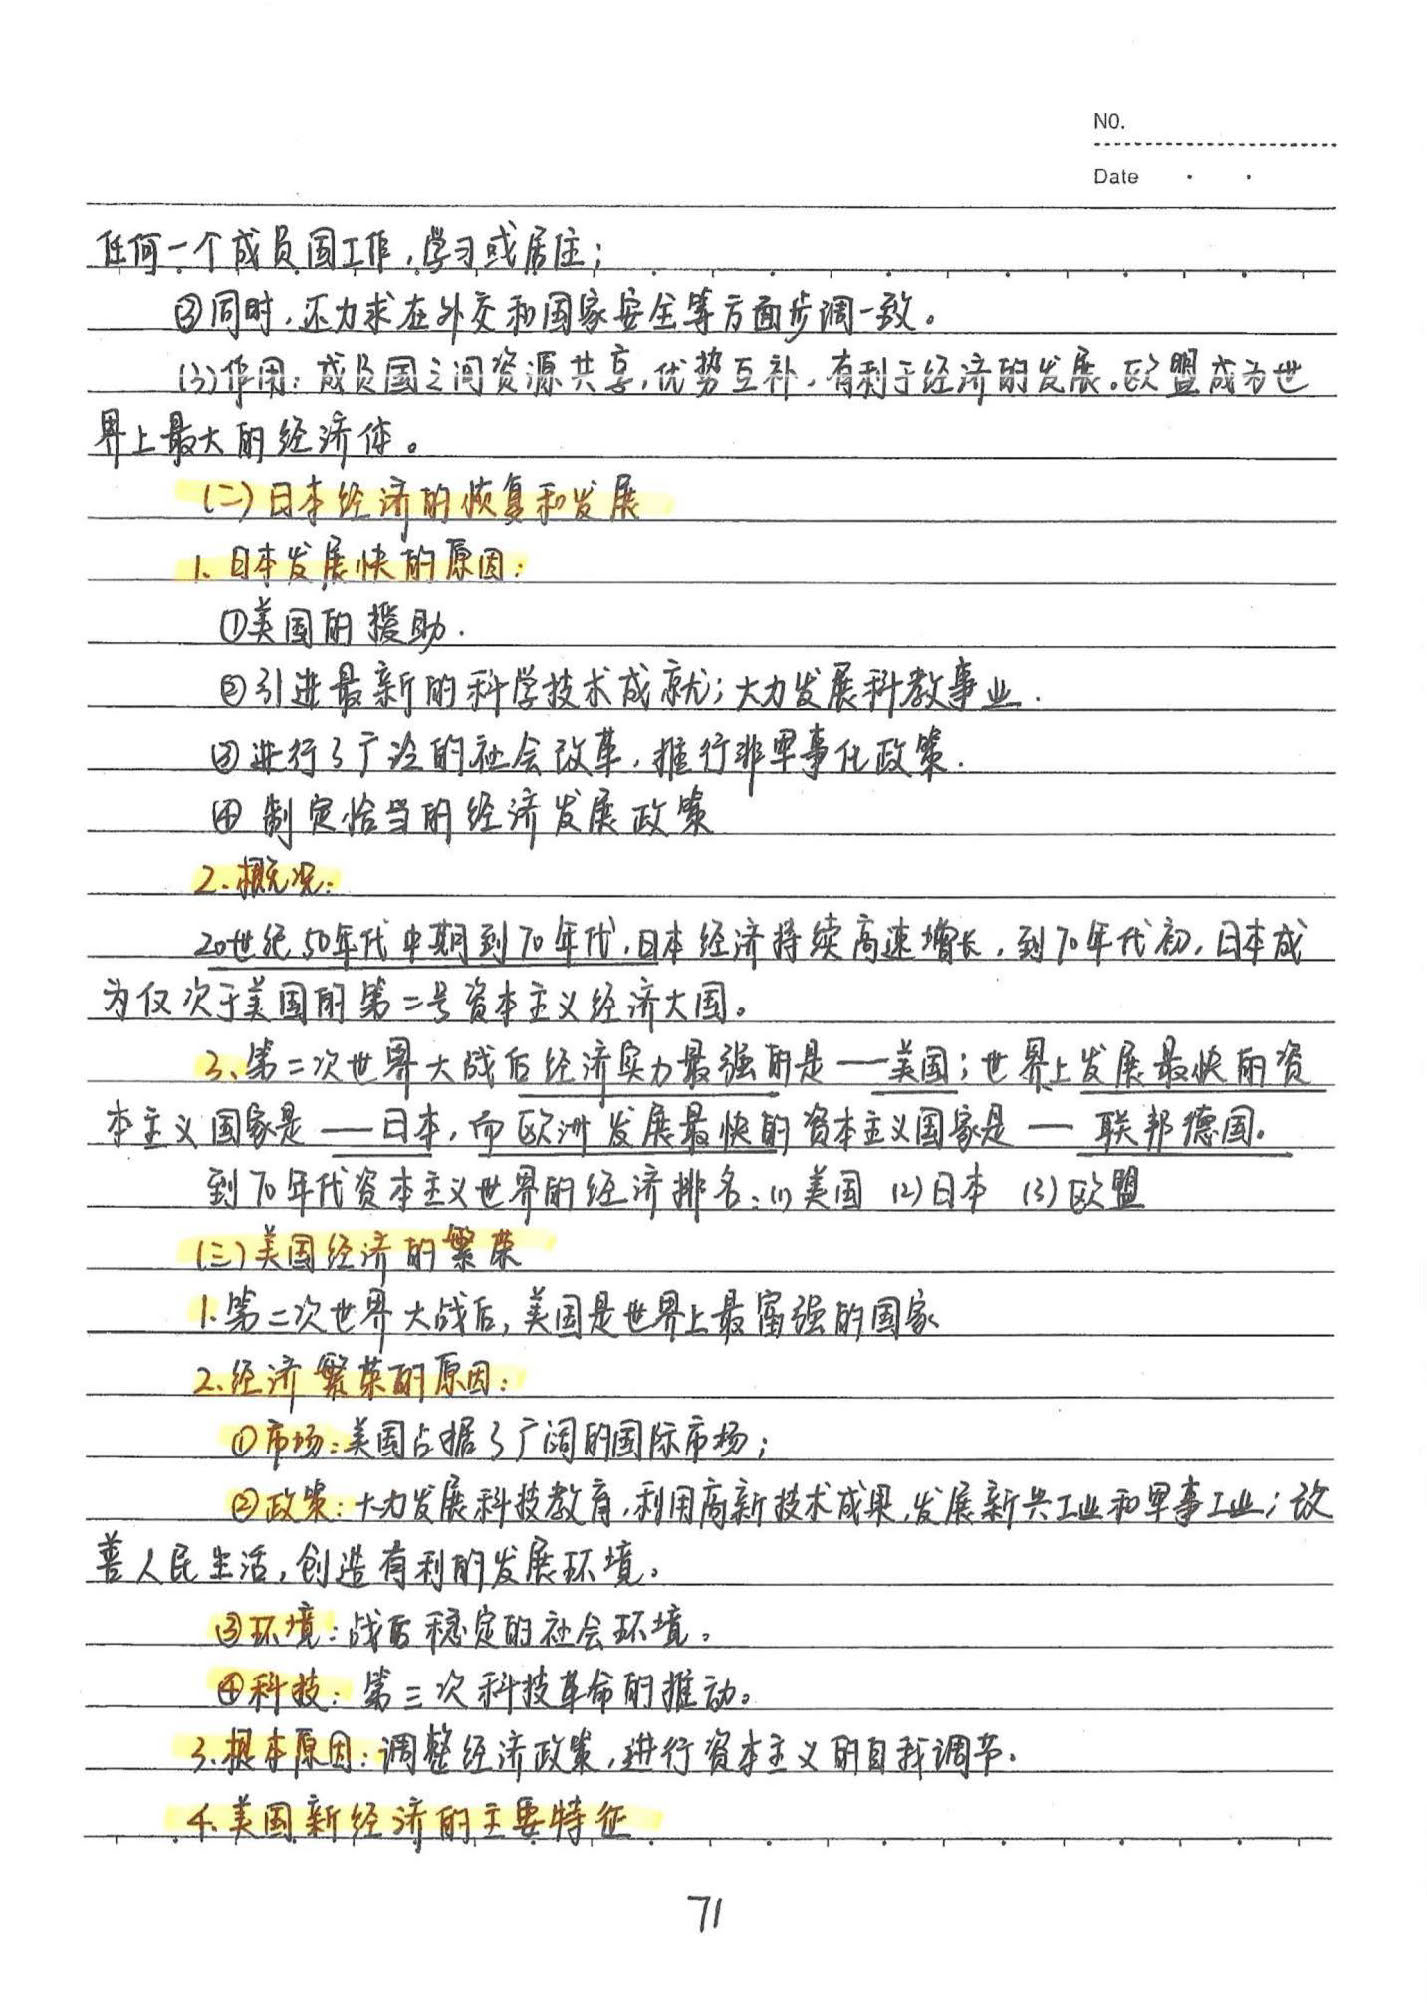 NO.
Date
任何一个成员国工作,学习或居住;
③同时,还力求在外交和国家安全等方面步调一致。
(3)作用:成员国之间资源共享,优势互补,有利于经济的发展。欧盟成为世
界上最大的经济体。
(二)日本经济的恢复和发展
1.日本发展快的原因:
①美国的援助.
②引进最新的科学技术成就;大力发展科教事业.
③进行了广泛的社会改革,推行非军事化政策.
④制定恰当的经济发展政策
2.概况:
20世纪50年代中期到70年代,日本经济持续高速增长,到70年代初,日本成
为仅次于美国的第二号资本主义经济大国。
3.第二次世界大战后经济实力最强的是——美国;世界上发展最快的资
本主义国家是——日本,而欧洲发展最快的资本主义国家是——联邦德国。
到70年代资本主义世界的经济排名:(1)美国 (2)日本 (3)欧盟
(三)美国经济的繁荣
1.第二次世界大战后,美国是世界上最富强的国家
2.经济繁荣的原因:
①市场:美国占据了广阔的国际市场;
②政策:大力发展科技教育,利用高新技术成果,发展新兴工业和军事工业;改
善人民生活,创造有利的发展环境。
③环境:战后稳定的社会环境。
④科技:第三次科技革命的推动。
3.根本原因:调整经济政策,进行资本主义的自我调节。
4.美国新经济的主要特征
71